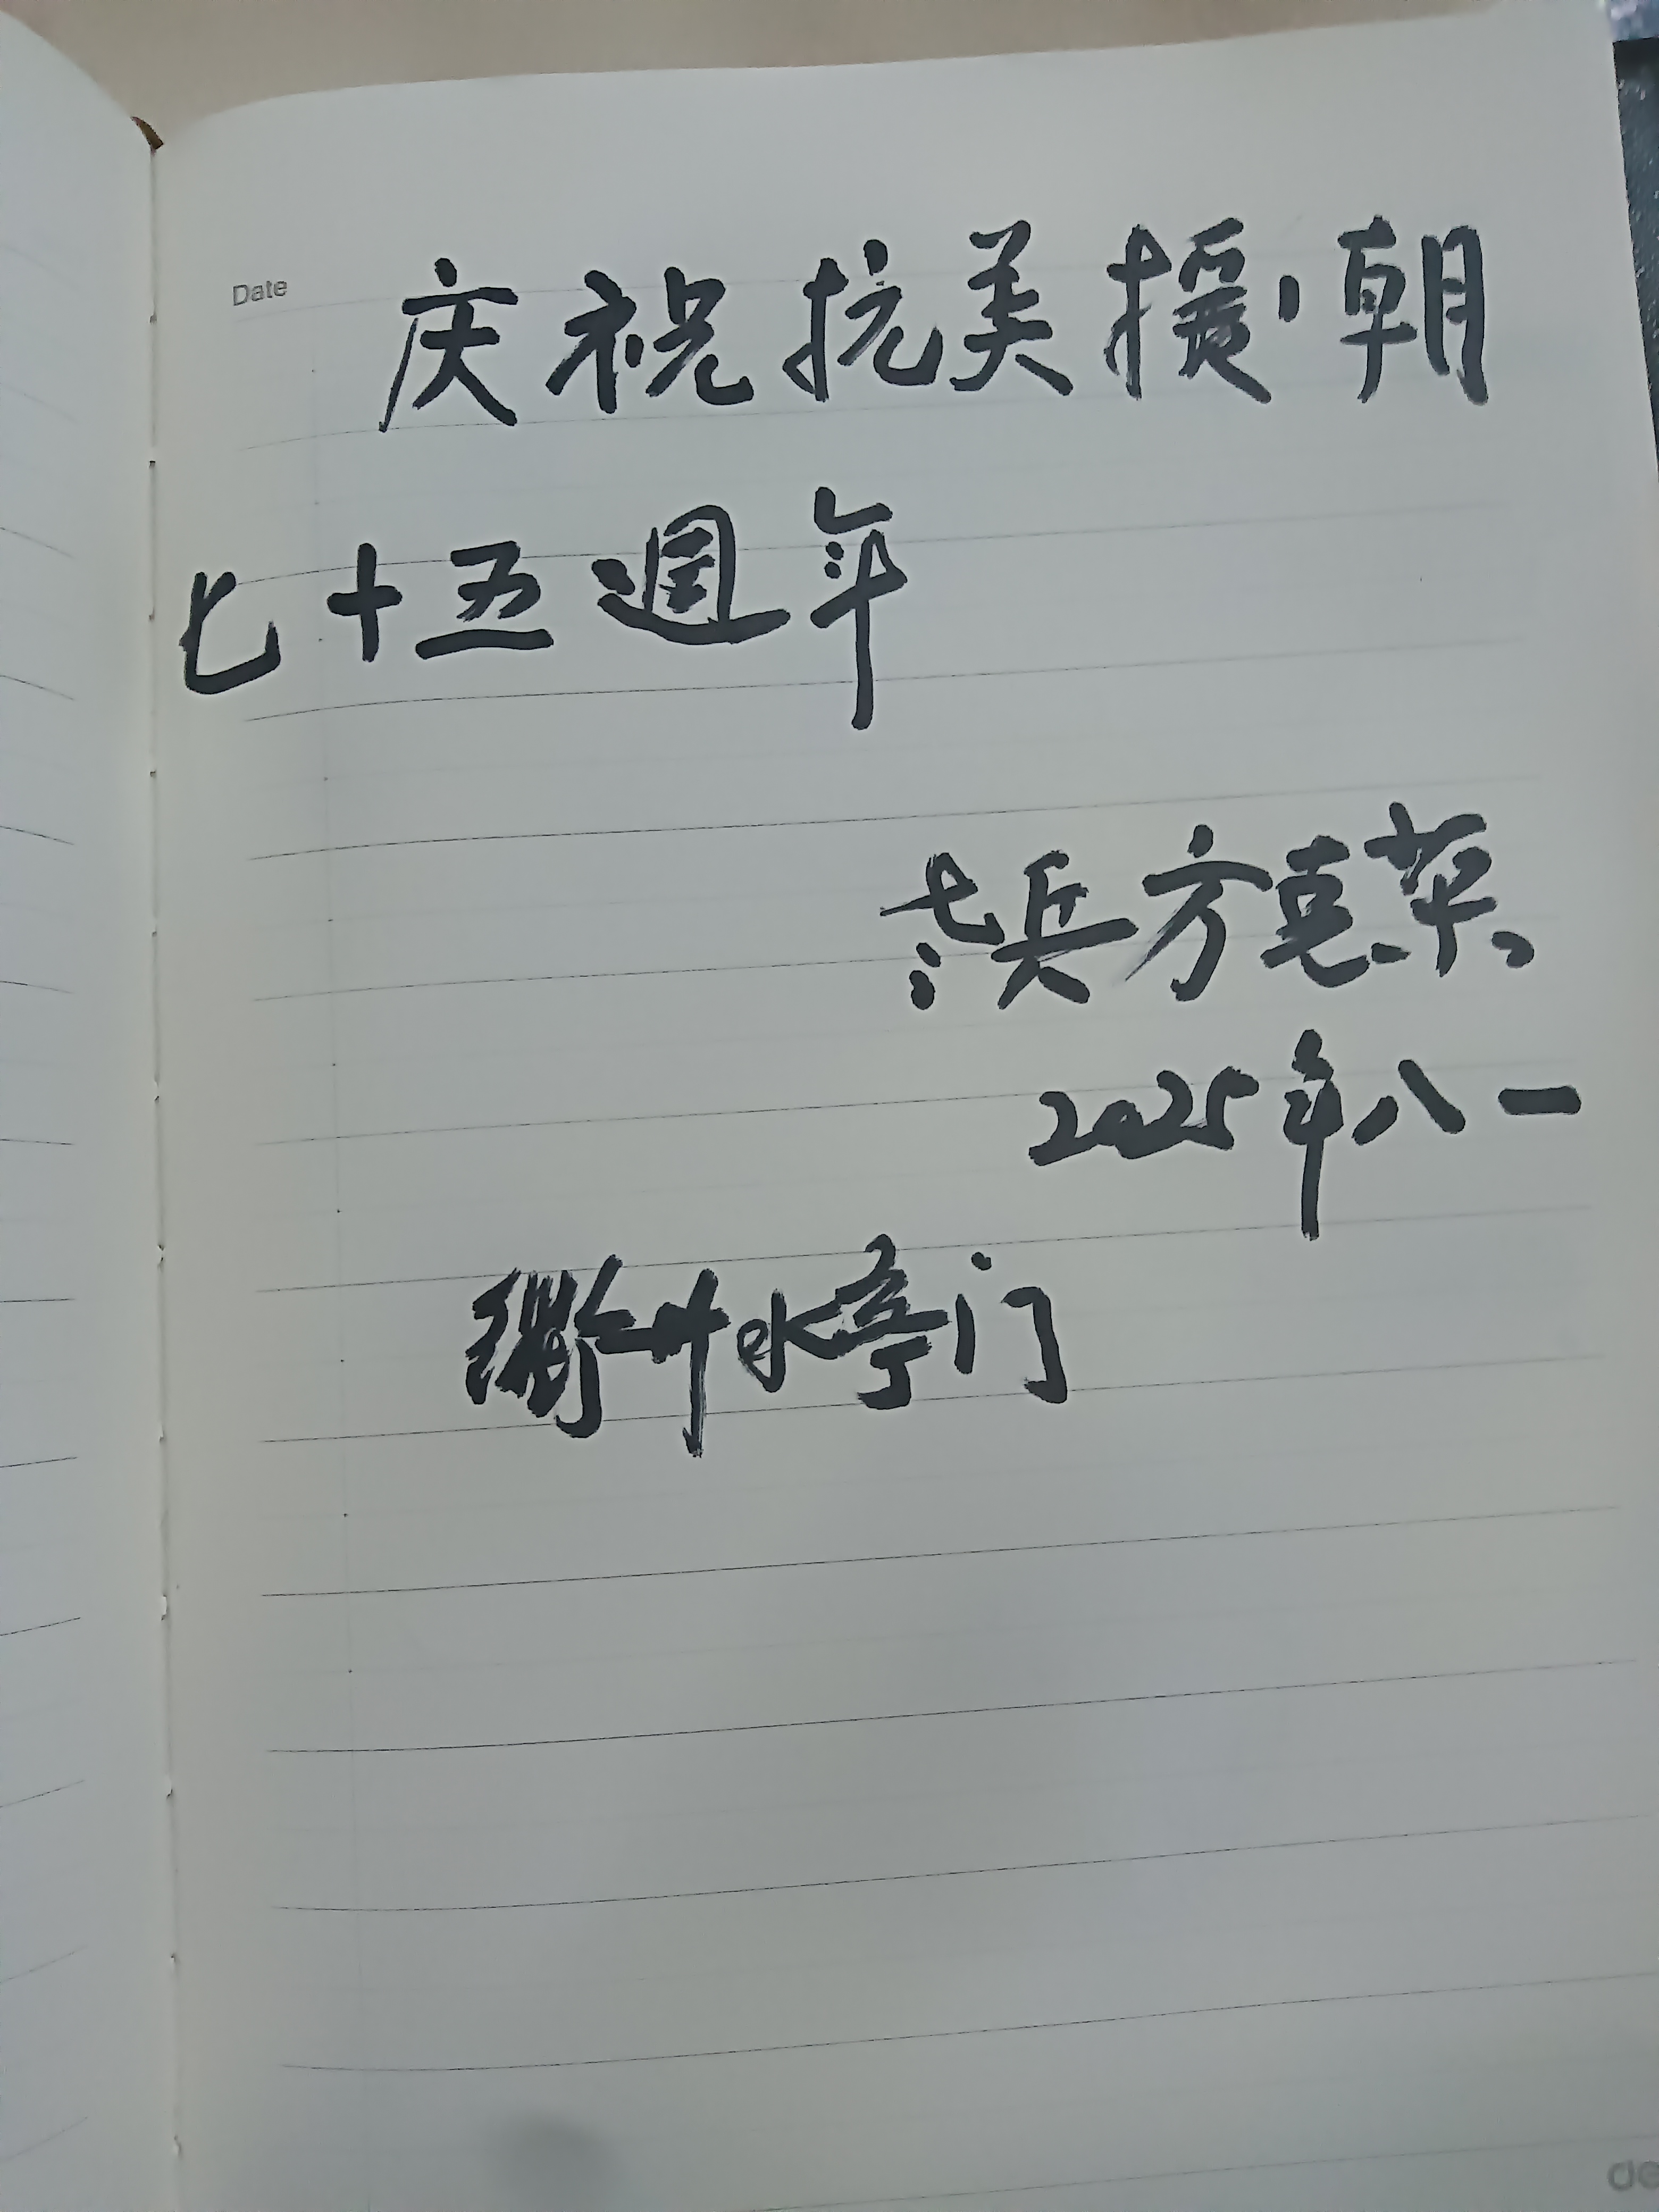 Date
庆祝抗美援朝
七十五週年
老兵方克荣
2025年八一
衢州水亭门
de